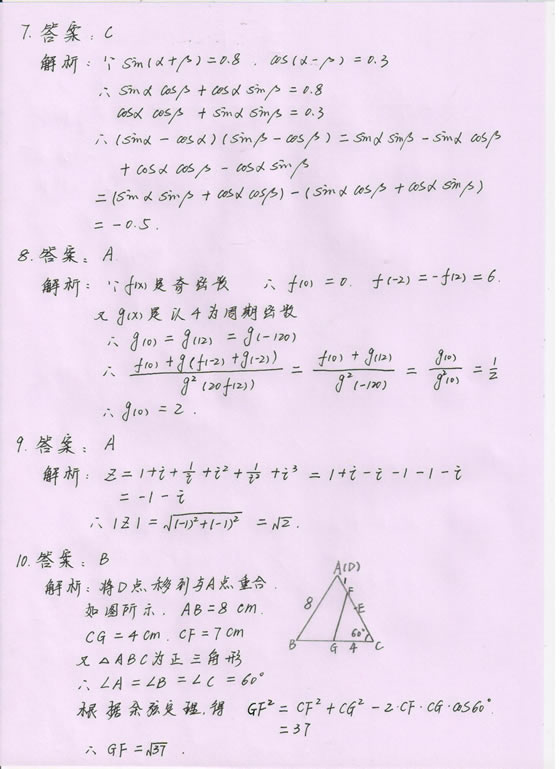 7. 答案: C
解析: ∵ sin(α+β)=0.8, cos(α-β)=0.3
∴ sinα cosβ + cosα sinβ = 0.8
cosα cosβ + sinα sinβ = 0.3
∴ (sinα - cosα)(sinβ - cosβ) = sinα sinβ - sinα cosβ
+ cosα cosβ - cosα sinβ
= (sinα sinβ + cosα cosβ) - (sinα cosβ + cosα sinβ)
= -0.5.
8. 答案: A
解析: ∵ f(x)是奇函数 ∴ f(0)=0. f(-2)=-f(2)=6.
又 g(x)是以4为周期函数
∴ g(0)=g(12)=g(-120)
∴ (f(0)+g(f(-2)+g(-2)))/(g²(20f(2))) = (f(0)+g(12))/(g²(-120)) = g(0)/g²(0) = 1/2
∴ g(0)=2.
9. 答案: A
解析: Z=1+i+1/i+i²+1/i²+i³ = 1+i-i-1-1-i
= -1-i
∴ |Z| = √((-1)²+(-1)²) = √2.
10. 答案: B
解析: 将D点移到与A点重合.
如图所示. AB=8cm.
CG=4cm. CF=7cm
又△ABC为正三角形
∴ ∠A=∠B=∠C=60°
根据余弦定理,得 GF²=CF²+CG²-2·CF·CG·cos60°
=37
∴ GF=√37.
A(D)
1
F
8
E
60°
B G 4 C